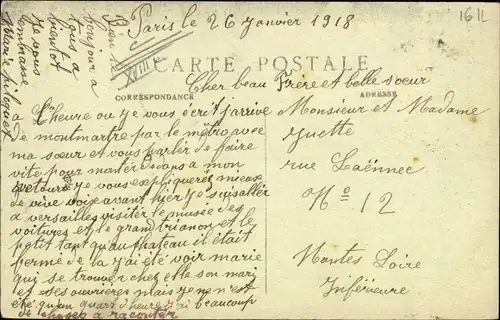 Paris le 26 Janvier 1918
161L
XVIII
CARTE POSTALE
Cher beau Frère et belle sœur
CORRESPONDANCE
ADRESSE
a l'heure ou je vous écrit j'arrive
de montmartre par le métro avec
ma sœur et vous parler de faire
vite pour manger dans a mon
retour je vous expliquerés mieux
de vive voix avant hyer je suis aller
a versailles visiter le musée des
voitures et le grand trianon et le
petit tant qu'au chateau il était
fermé de la j'ai été voir marie
qui se trouver chez elle son mari
et ses ouvrières mais je n'en est
été qu'un quart d'heure j'ai beaucoup
de choses a raconter
Monsieur et Madame
Guette
rue Laënnec
No 12
Nantes Loire
Inférieure
bonjour a
tous a
bientot
Je vous
embrasse